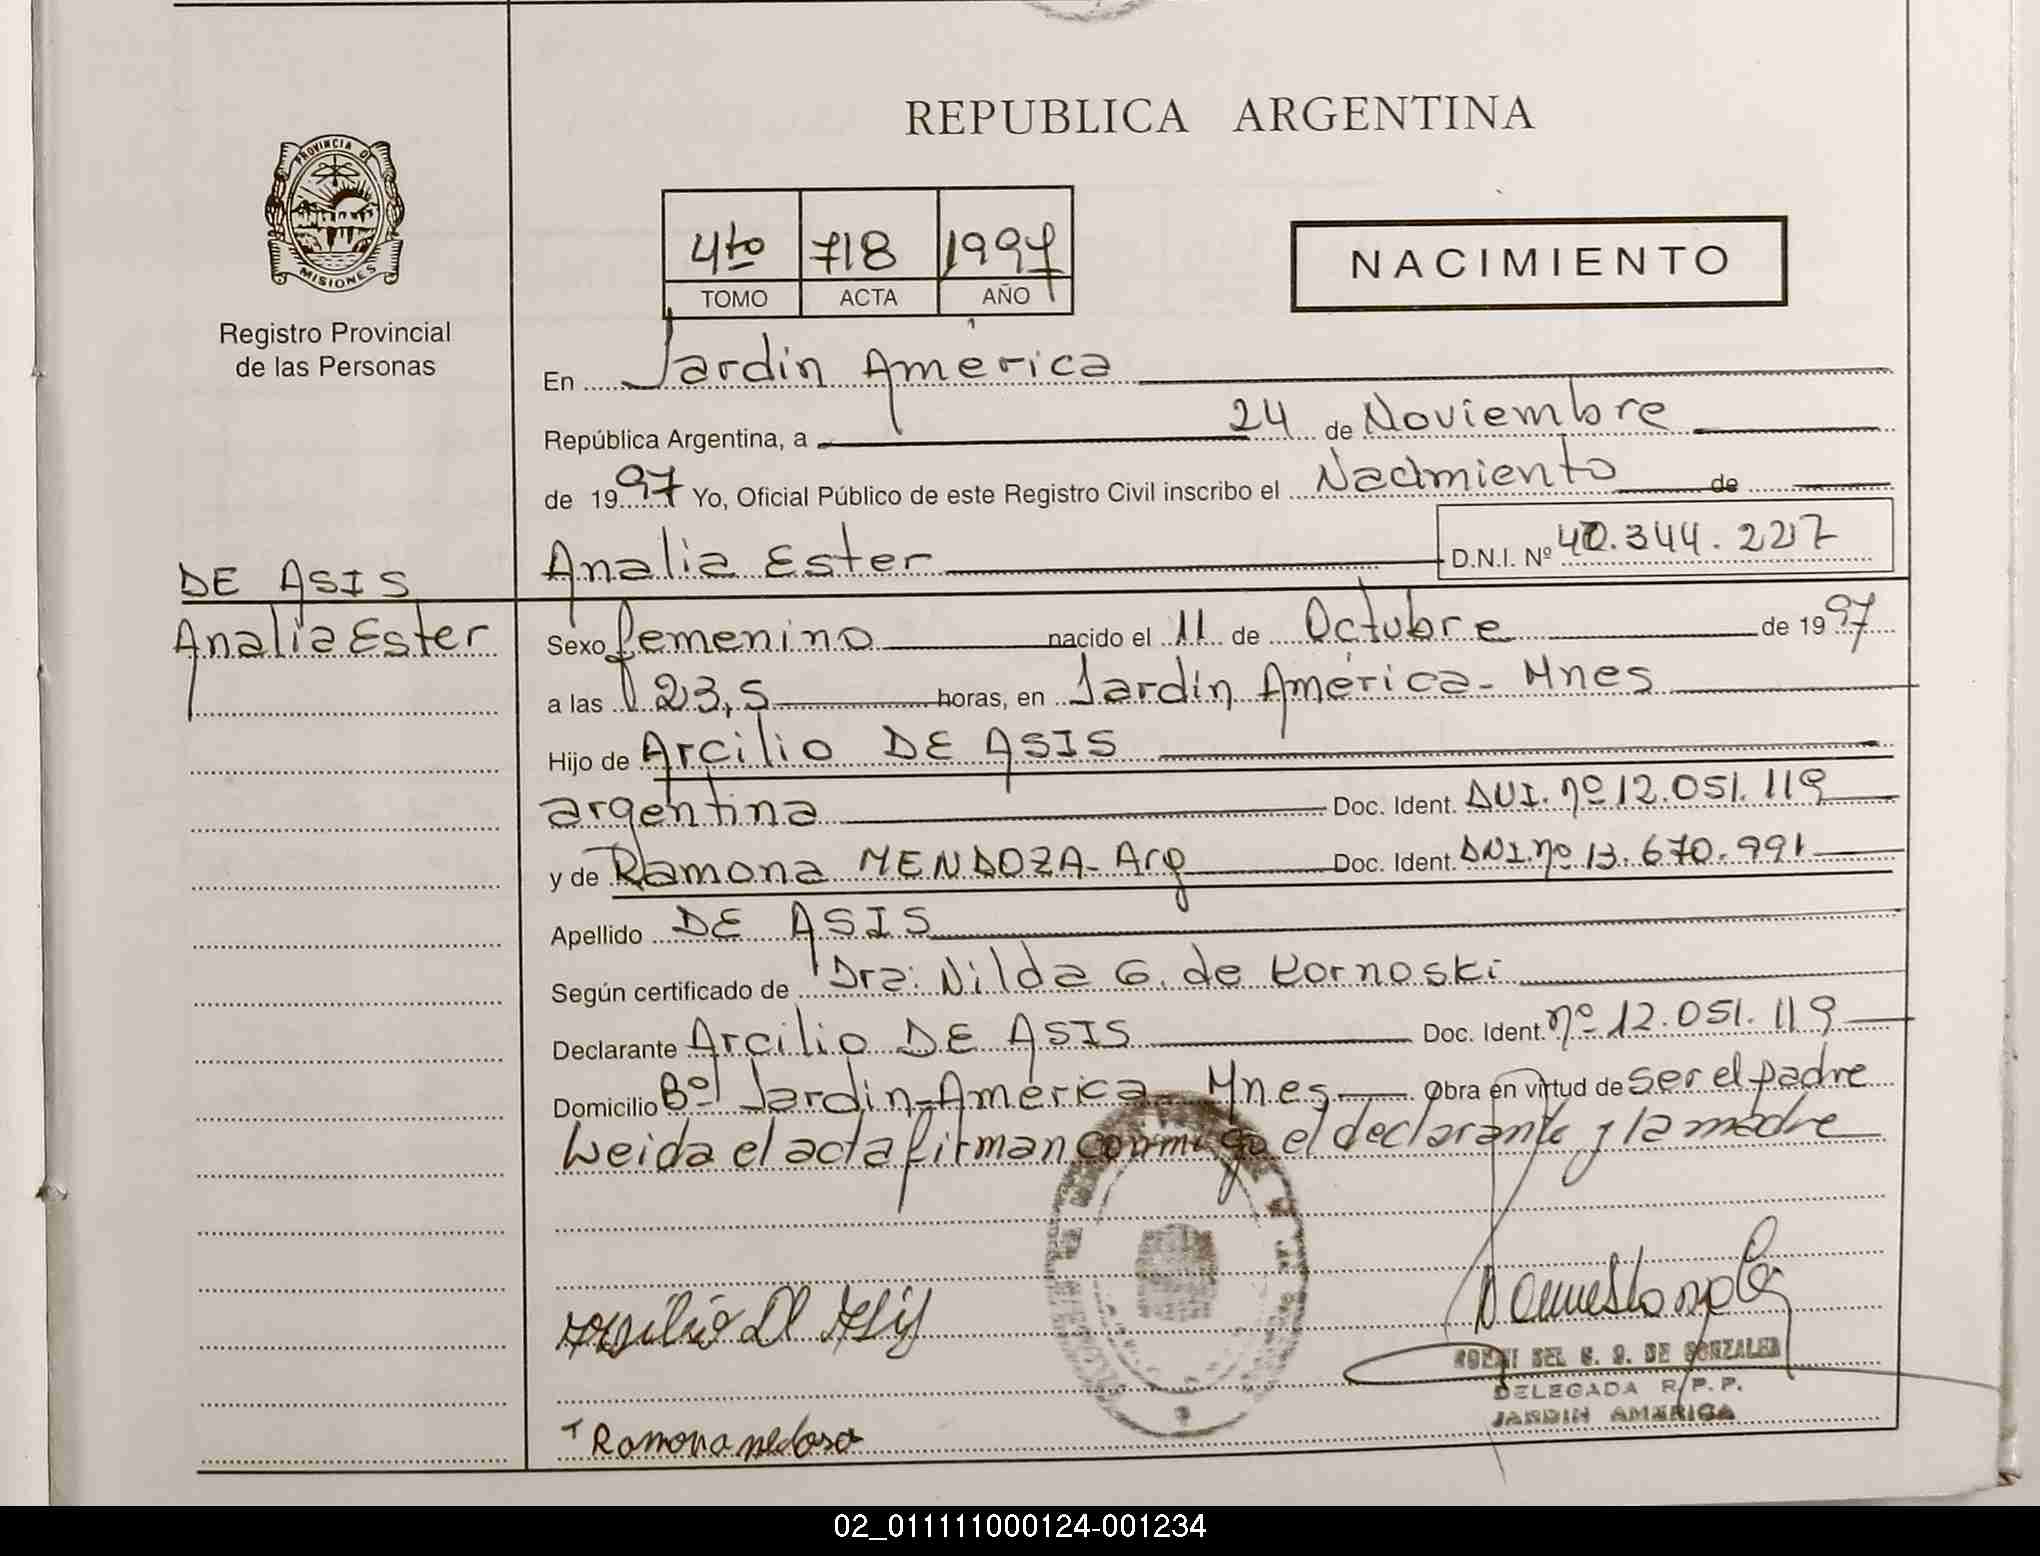 REPUBLICA ARGENTINA
PROVINCIA DE
MISIONES
Registro Provincial
de las Personas
4to 718 1997
TOMO ACTA AÑO
NACIMIENTO
En Jardin América
República Argentina, a 24 de Noviembre
de 1997 Yo, Oficial Público de este Registro Civil inscribo el Nacimiento de
DE ASIS
Analia Ester
Analia Ester D.N.I. Nº 40.344.227
Sexo femenino nacido el 11 de Octubre de 1997
a las 23,5 horas, en Jardin América - Mnes
Hijo de Arcilio DE ASIS
argentina Doc. Ident. DNI. nº 12.051.119
y de Ramona MENDOZA - Arg Doc. Ident. DNI. nº 13.670.991
Apellido DE ASIS
Según certificado de Dra: Nilda G. de Kornoski
Declarante Arcilio DE ASIS Doc. Ident. nº 12.051.119
Domicilio Bº Jardin América - Mnes Obra en virtud de ser el padre
Leida el acta firman conmigo el declarante y la madre
DEL DE GONZALEZ
DELEGADA R.P.P.
JARDIN AMERICA
Ramona
02_011111000124-001234